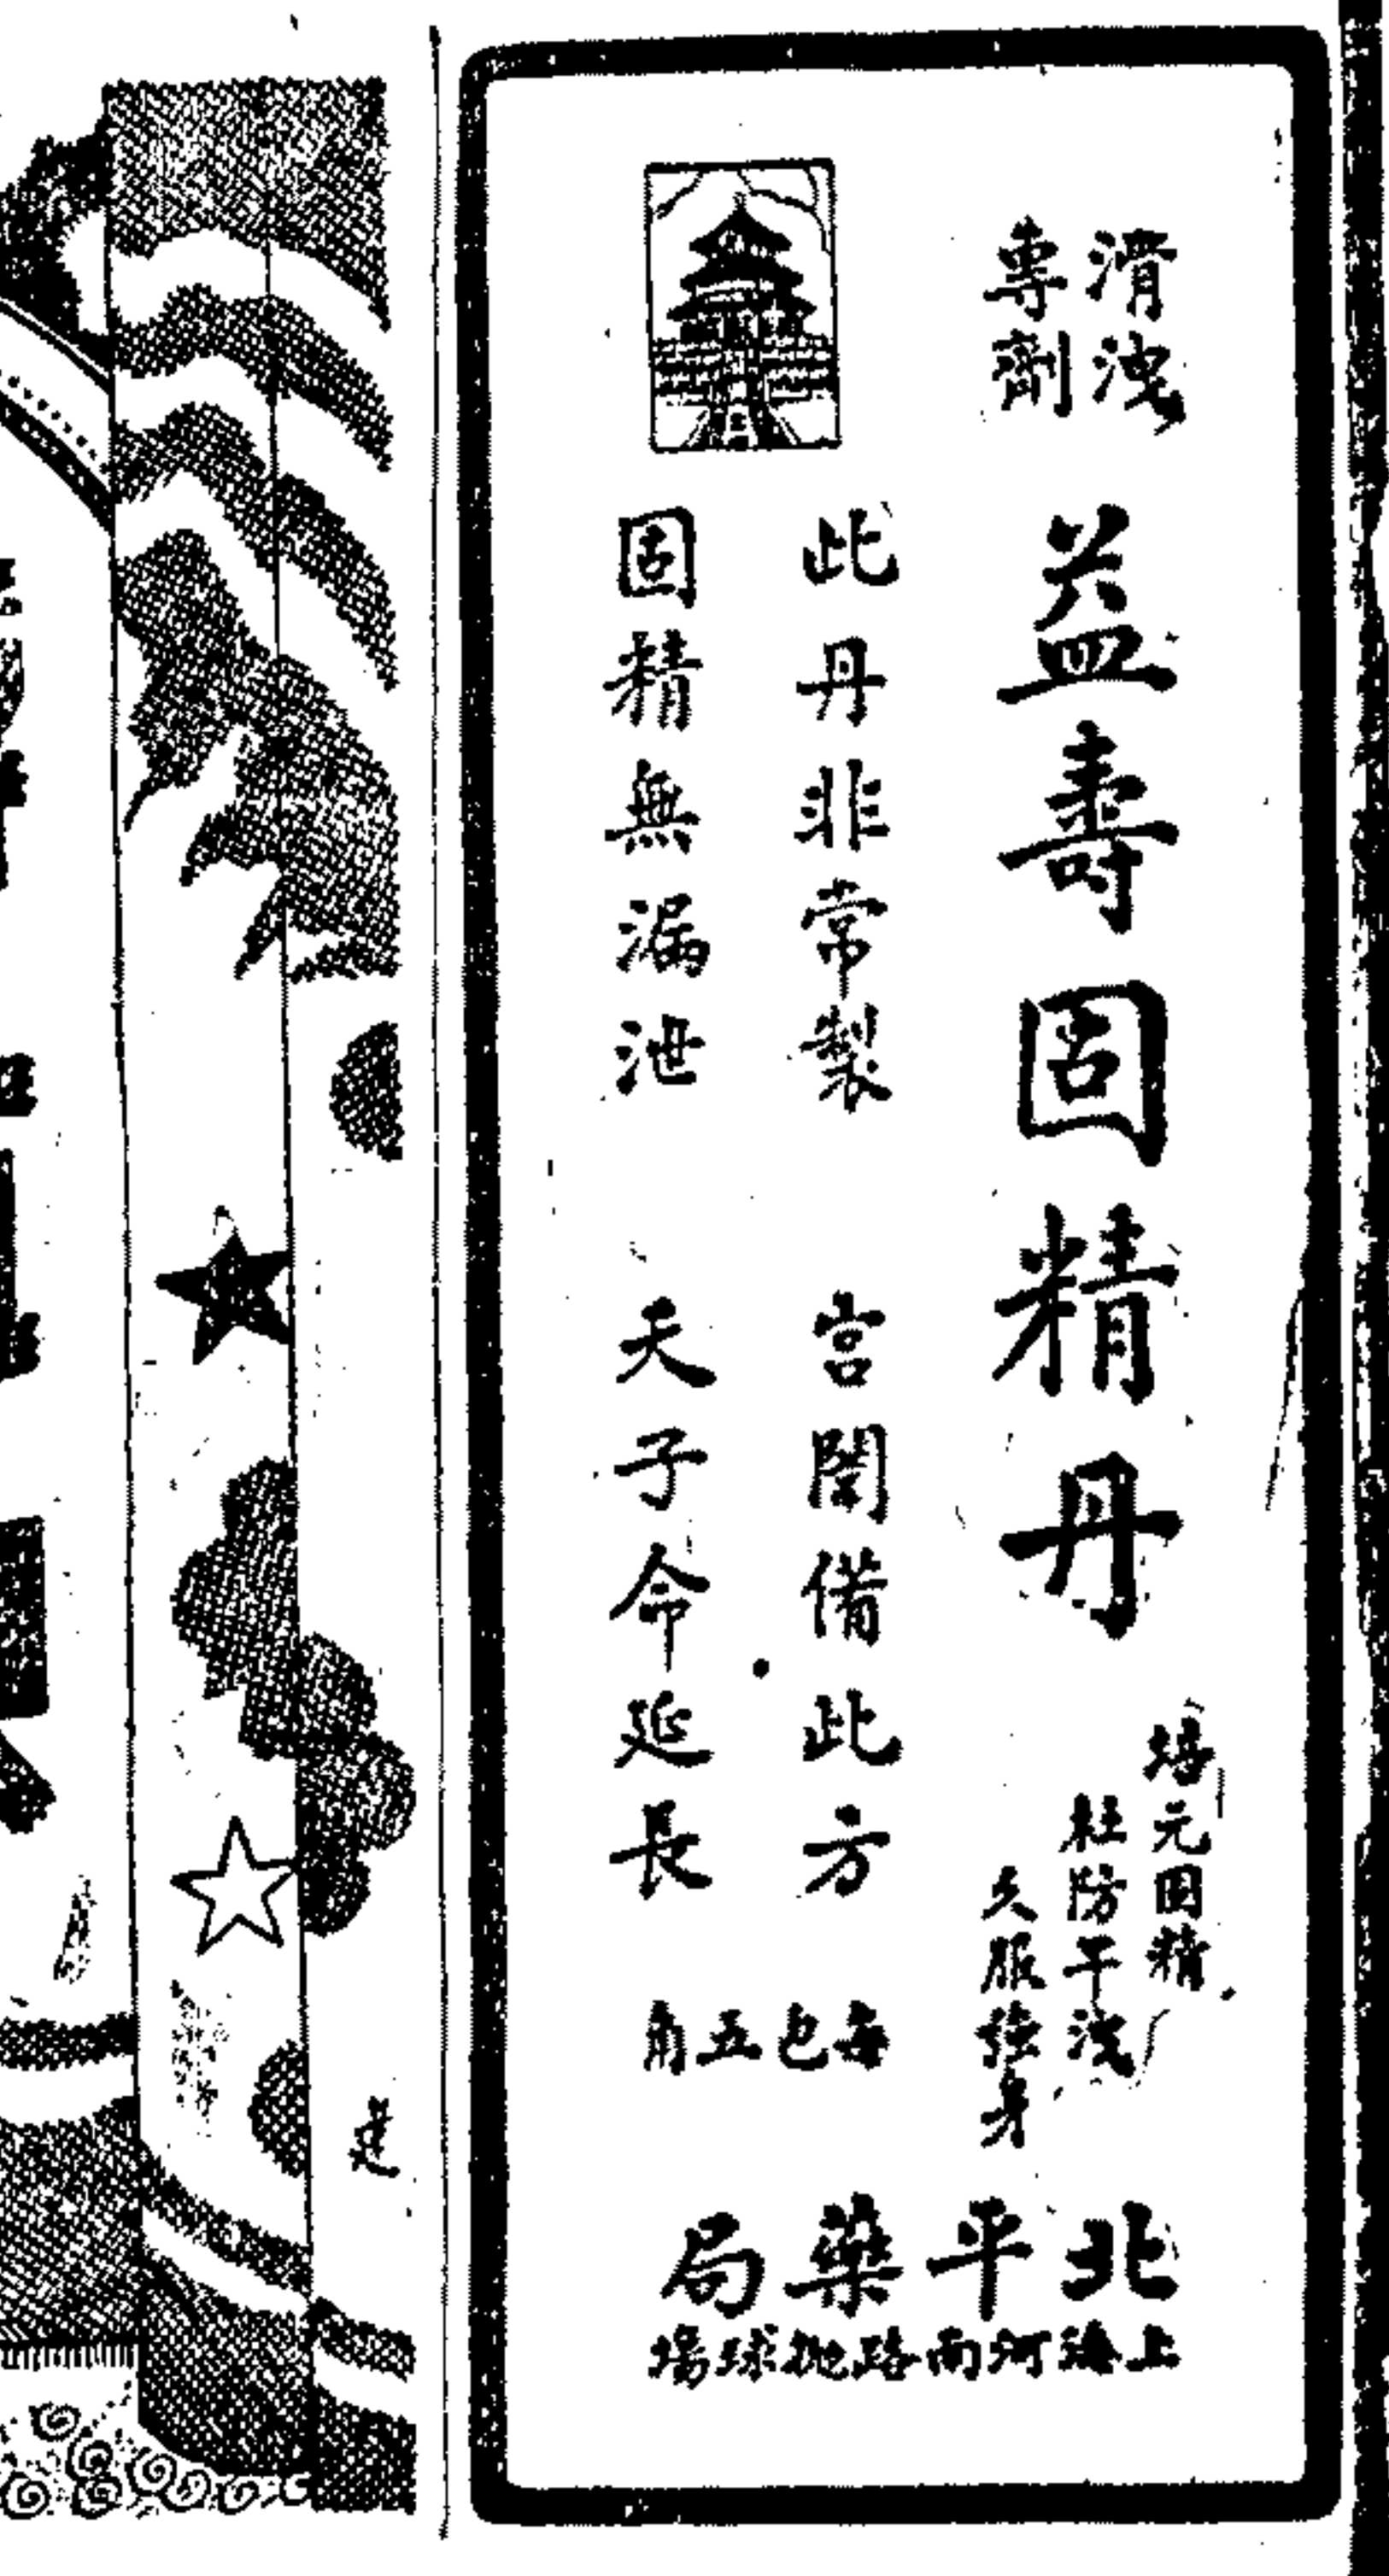 滑洩
專劑
益壽固精丹
培元固精
杜防干洩
久服強身
此丹非常製 宮闈備此方
固精無漏泄 天子命延長
每包五角
北平藥局
上海河南路抛球場